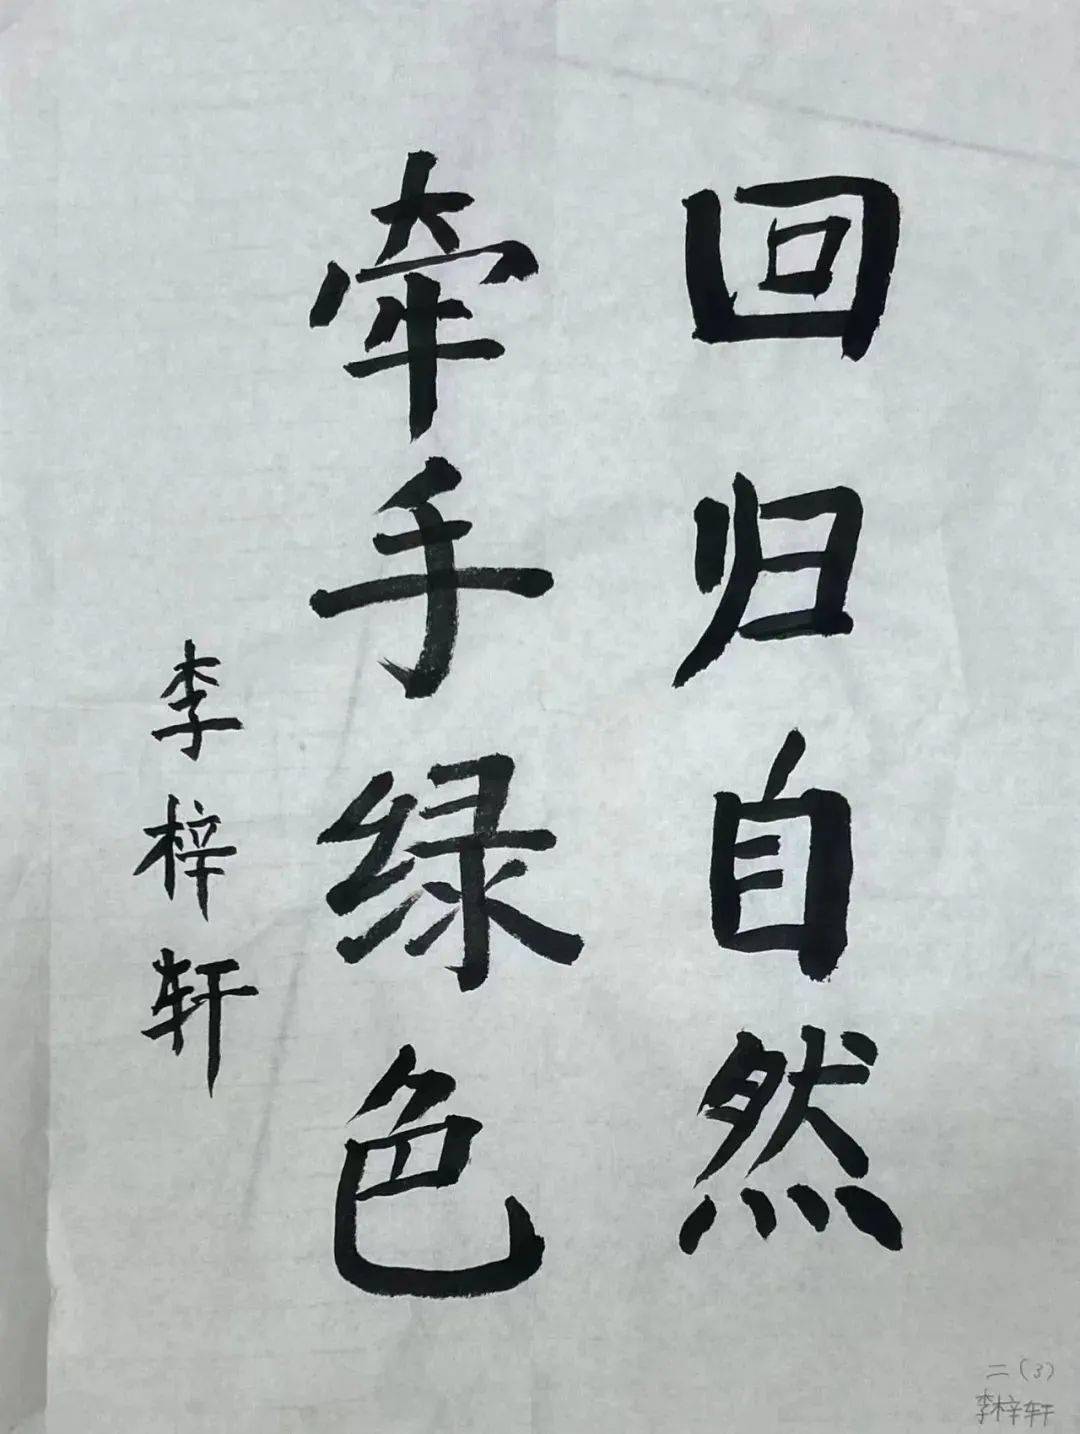 回归自然
牵手绿色
李梓轩
二(3)
李梓轩